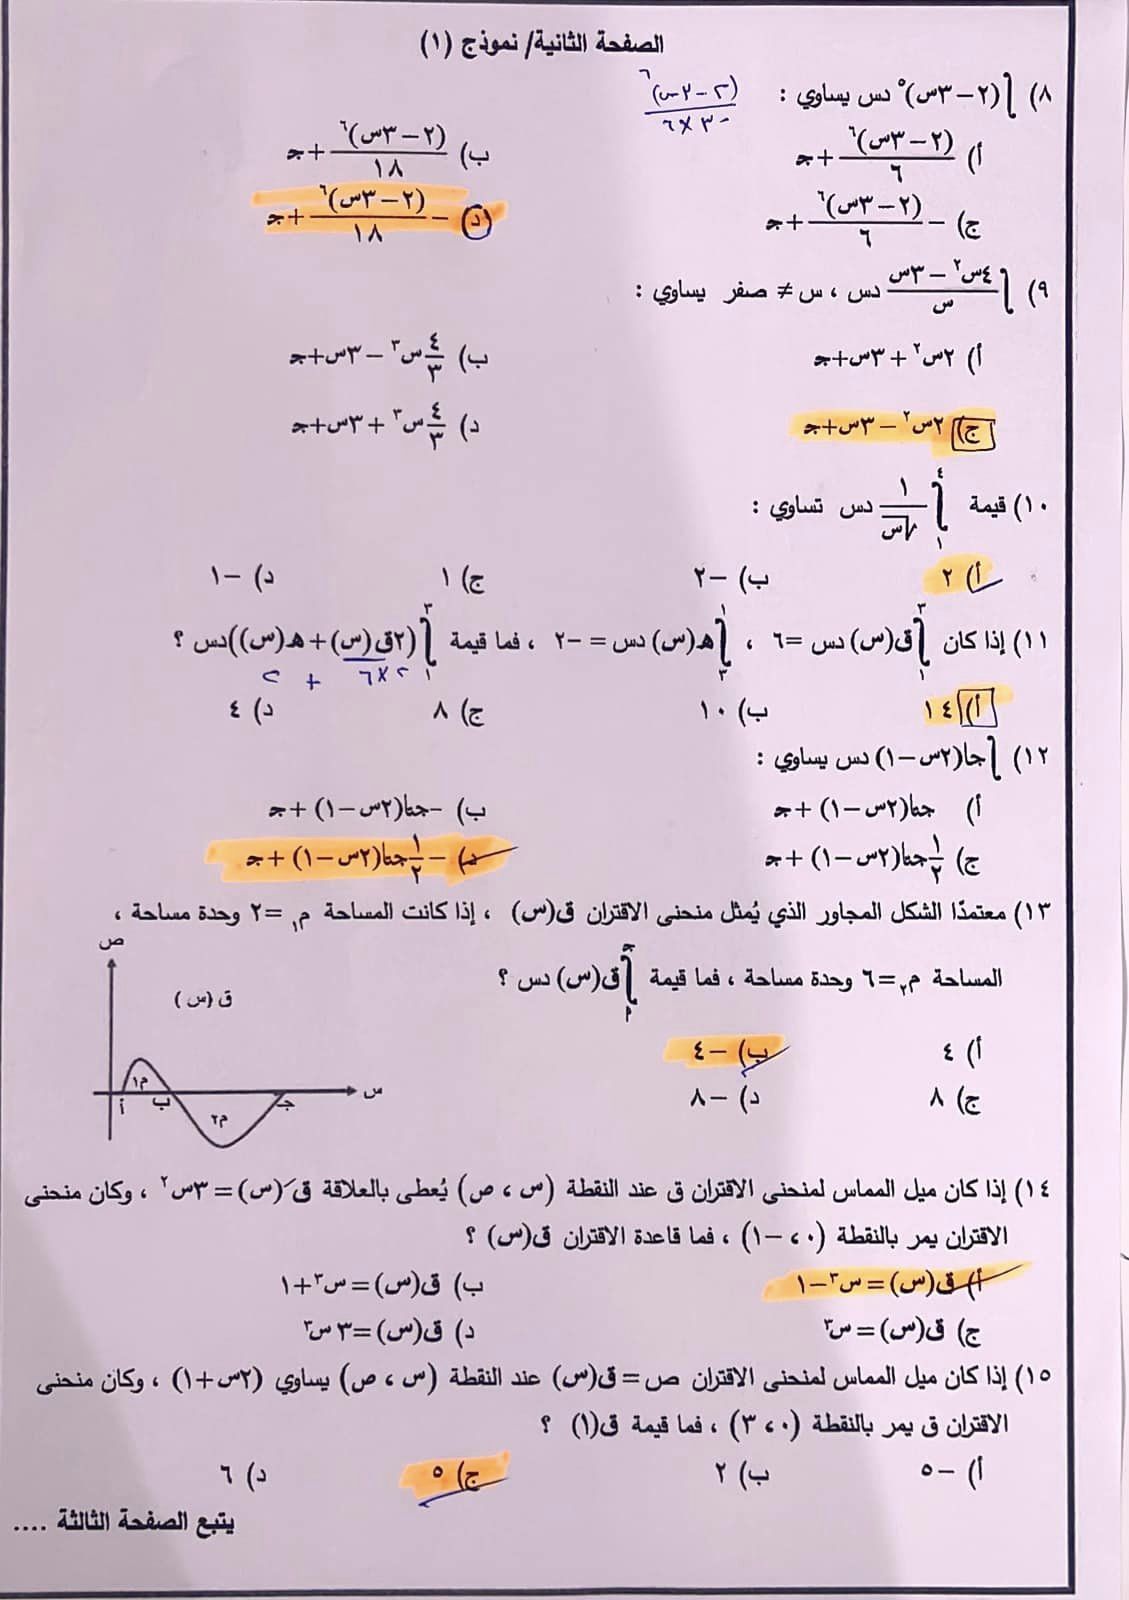 الصفحة الثانية/ نموذج (١)
٨) ∫(٢-٣س)^٥ دس يساوي :
(٢-٣س)^٦
-٣×٦
أ) (٢-٣س)^٦/٦ +جـ
ب) (٢-٣س)^٦/١٨ +جـ
ج) -(٢-٣س)^٦/٦ +جـ
د) -(٢-٣س)^٦/١٨ +جـ
٩) ∫(٤س^٢-٣س)/س دس ، س ≠ صفر يساوي :
أ) ٢س^٢+٣س+جـ
ب) ٤/٣ س^٣-٣س+جـ
ج) ٢س^٢-٣س+جـ
د) ٤/٣ س^٣+٣س+جـ
١٠) قيمة ∫_١^٤ ١/√س دس تساوي :
أ) ٢ ب) -٢ ج) ١ د) -١
١١) إذا كان ∫_١^٣ ق(س) دس =٦ ، ∫_٣^١ هـ(س) دس = -٢ ، فما قيمة ∫_١^٣ (٢ق(س)+هـ(س))دس ؟
٢×٦ + ٢
أ) ١٤ ب) ١٠ ج) ٨ د) ٤
١٢) ∫جا(٢س-١) دس يساوي :
أ) جتا(٢س-١) +جـ
ب) -جتا(٢س-١) +جـ
ج) ١/٢ جتا(٢س-١) +جـ
د) -١/٢ جتا(٢س-١) +جـ
١٣) معتمدًا الشكل المجاور الذي يُمثل منحنى الاقتران ق(س) ، إذا كانت المساحة م١ =٢ وحدة مساحة ،
المساحة م٢ =٦ وحدة مساحة ، فما قيمة ∫_أ^جـ ق(س) دس ؟
أ) ٤ ب) -٤
ج) ٨ د) -٨
ص
ق (س )
م١
س
أ
ب
جـ
م٢
١٤) إذا كان ميل المماس لمنحنى الاقتران ق عند النقطة (س ، ص) يُعطى بالعلاقة قَ(س)=٣س^٢ ، وكان منحنى
الاقتران يمر بالنقطة (٠ ، -١) ، فما قاعدة الاقتران ق(س) ؟
أ) ق(س)=س^٣-١
ب) ق(س)=س^٣+١
ج) ق(س)=س^٣
د) ق(س)=٣ س^٣
١٥) إذا كان ميل المماس لمنحنى الاقتران ص=ق(س) عند النقطة (س ، ص) يساوي (٢س+١) ، وكان منحنى
الاقتران ق يمر بالنقطة (٠ ، ٣) ، فما قيمة ق(١) ؟
أ) -٥ ب) ٢ ج) ٥ د) ٦
يتبع الصفحة الثالثة ....